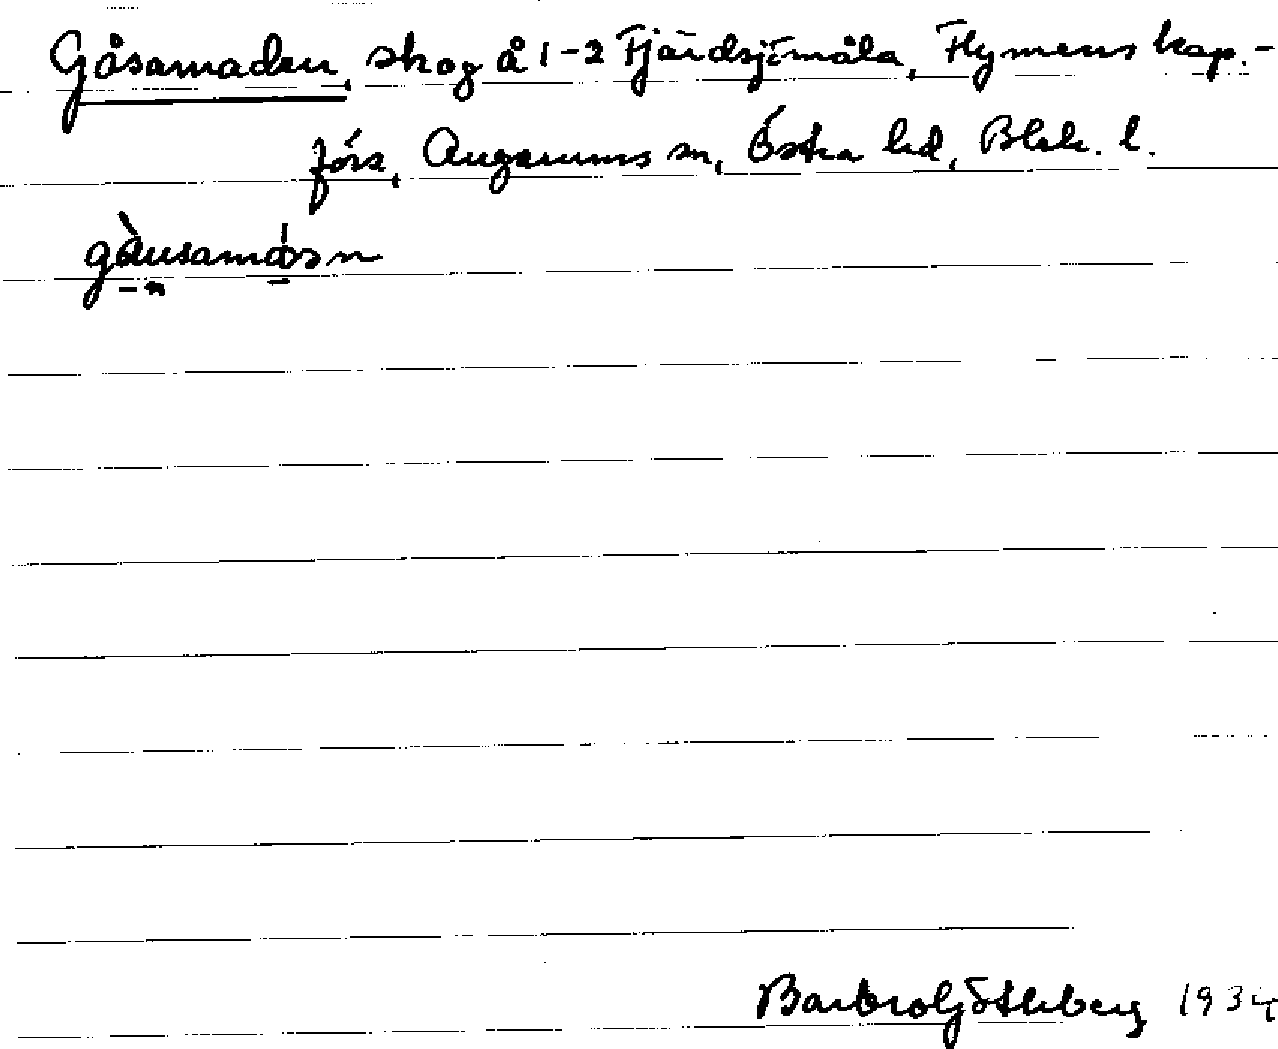 Gåsamaden, skog å 1-2 Fjärdsjömåla, Flymens kap.-
förs, Augerums sn, Östra hd, Blek. l.
Barbro Götheberg 1934